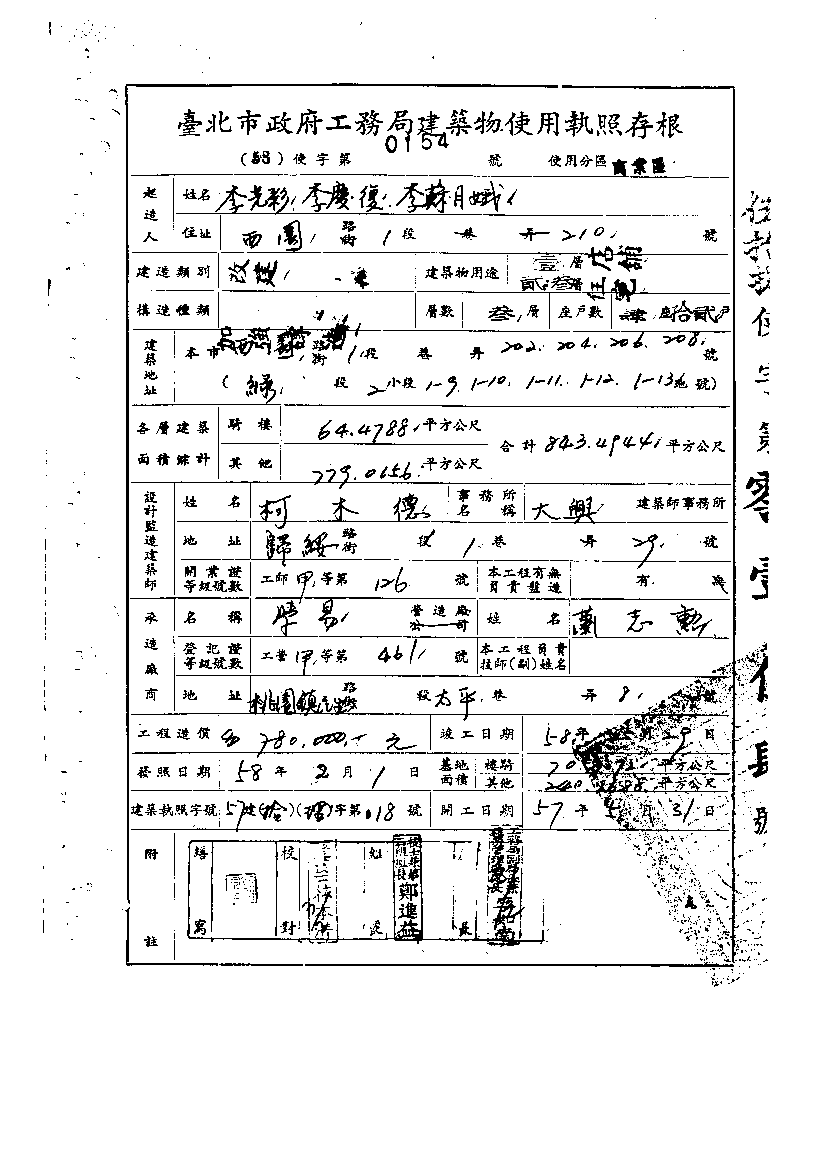 臺北市政府工務局建築物使用執照存根
(58)使字第0154號 使用分區商業區
起造人 姓名 李光彩 李慶復 李蘇月娥
住址 西園路街1段 巷 弄210號
建造類別 改建 建築物用途 壹層店舖 貳叁層住宅
構造種類 加強磚造 層數 叁層 座戶數 座拾貳戶
建築地址 本市 西園路街1段 巷 弄202.204.206.208.號
(綠 段2小段1-9.1-10.1-11.1-12.1-13地號)
各層建築面積綜計 騎樓 64.4788平方公尺 合計843.4944平方公尺
其他 779.0156平方公尺
設計監造建築師 姓名 柯木德 事務所名稱 大興 建築師事務所
地址 歸綏路街 段1巷 弄29號
開業證等級號數 工師甲等第126號 本工程有無負責監造 有 無
承造廠商 名稱 榮易 營造廠公司 姓名 蕭志勳
登記證等級號數 工營甲等第461號 本工程負責技師(副)姓名
地址 桃園鎮 路街 段太平巷 弄8號
工程造價 780,000元 竣工日期 58年 月 9日
發照日期 58年2月1日 基地面積 騎樓 平方公尺
其他 平方公尺
建築執照字號 57建( )( )字第018號 開工日期 57年5月31日
附註 繕寫 校對 鄭進益